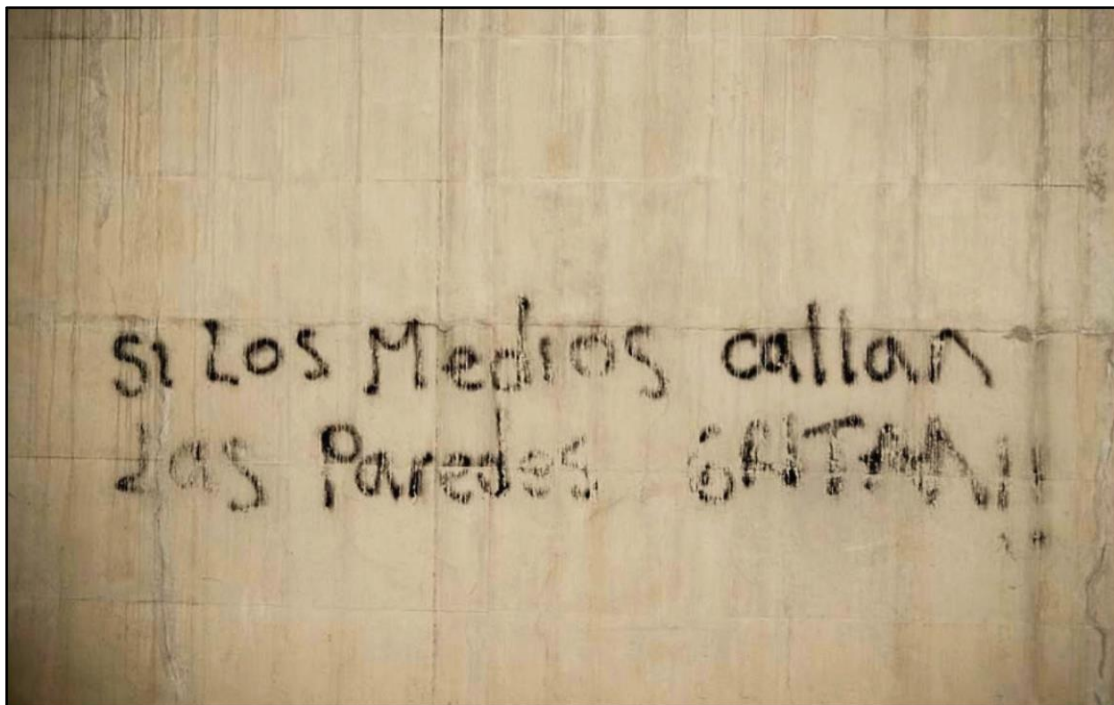 Si Los Medios callan
Las Paredes GRITAN!!